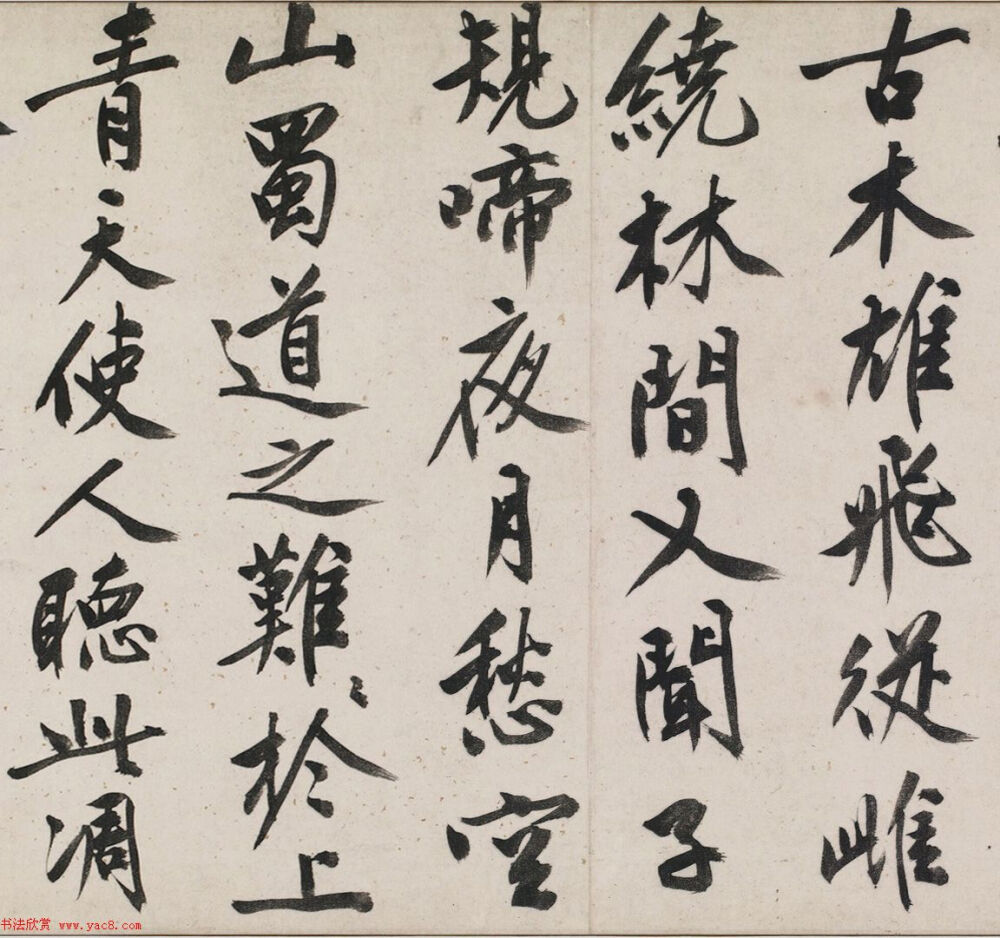 古木雄飛從雌
繞林間又聞子
規啼夜月愁空
山蜀道之難〻於上
青天使人聽此凋
书法欣赏 www.yac8.com